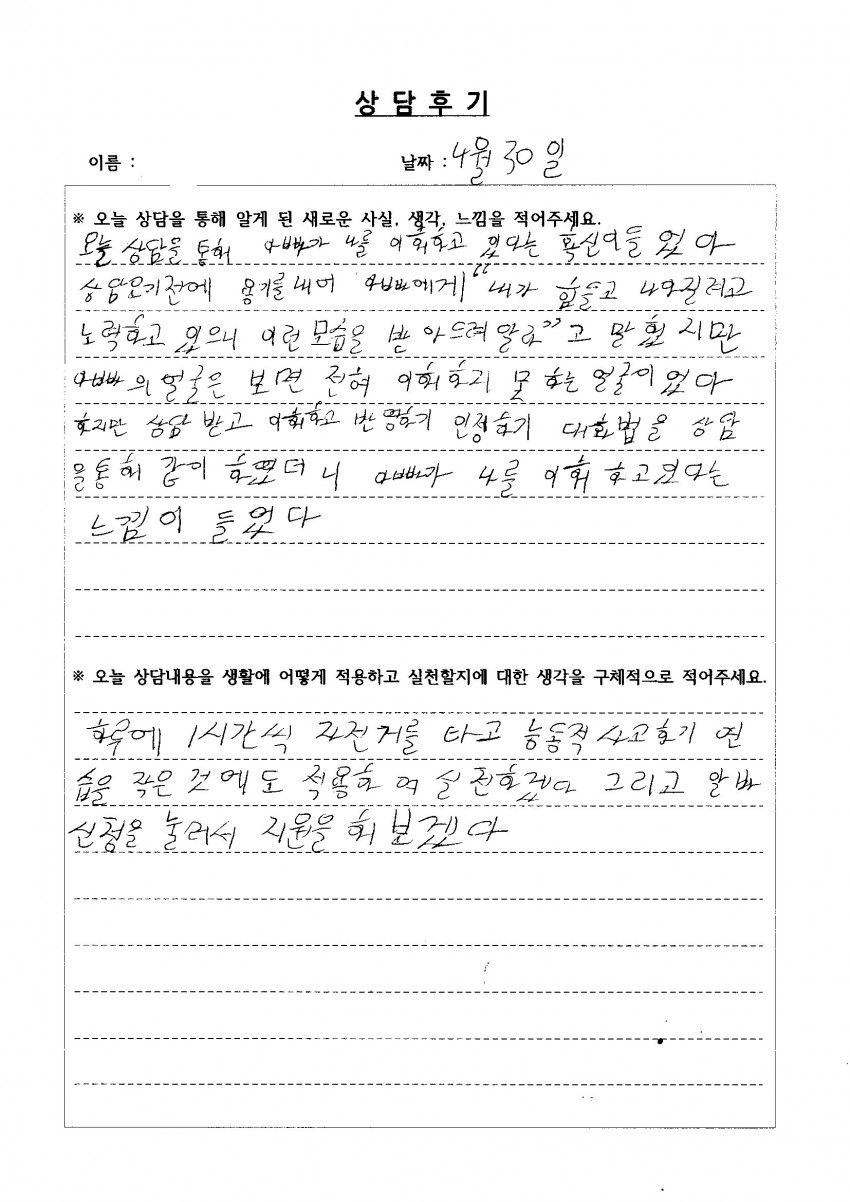 상 담 후 기
이름 : 날짜 : 4월 30일
※ 오늘 상담을 통해 알게 된 새로운 사실, 생각, 느낌을 적어주세요.
오늘 상담을 통해 아빠가 나를 이해하고 있다는 확신이들었다
상담오기전에 용기를내어 아빠에게 "내가 힘들고 나아질려고
노력하고 있으니 이런모습을 받아드려달라"고 말했지만
아빠의얼굴은 보면 전혀 이해하지 못하는 얼굴이었다
하지만 상담 받고 이해하고 반영하기 인정하기 대화법을 상담
을통해 같이 하였더니 아빠가 나를 이해하고있다는
느낌이 들었다
※ 오늘 상담내용을 생활에 어떻게 적용하고 실천할지에 대한 생각을 구체적으로 적어주세요.
하루에 1시간씩 자전거를 타고 능동적사고하기 연
습을 작은 것에도 적용하여 실천하겠다 그리고 알바
신청을 눌러서 지원을 해보겠다